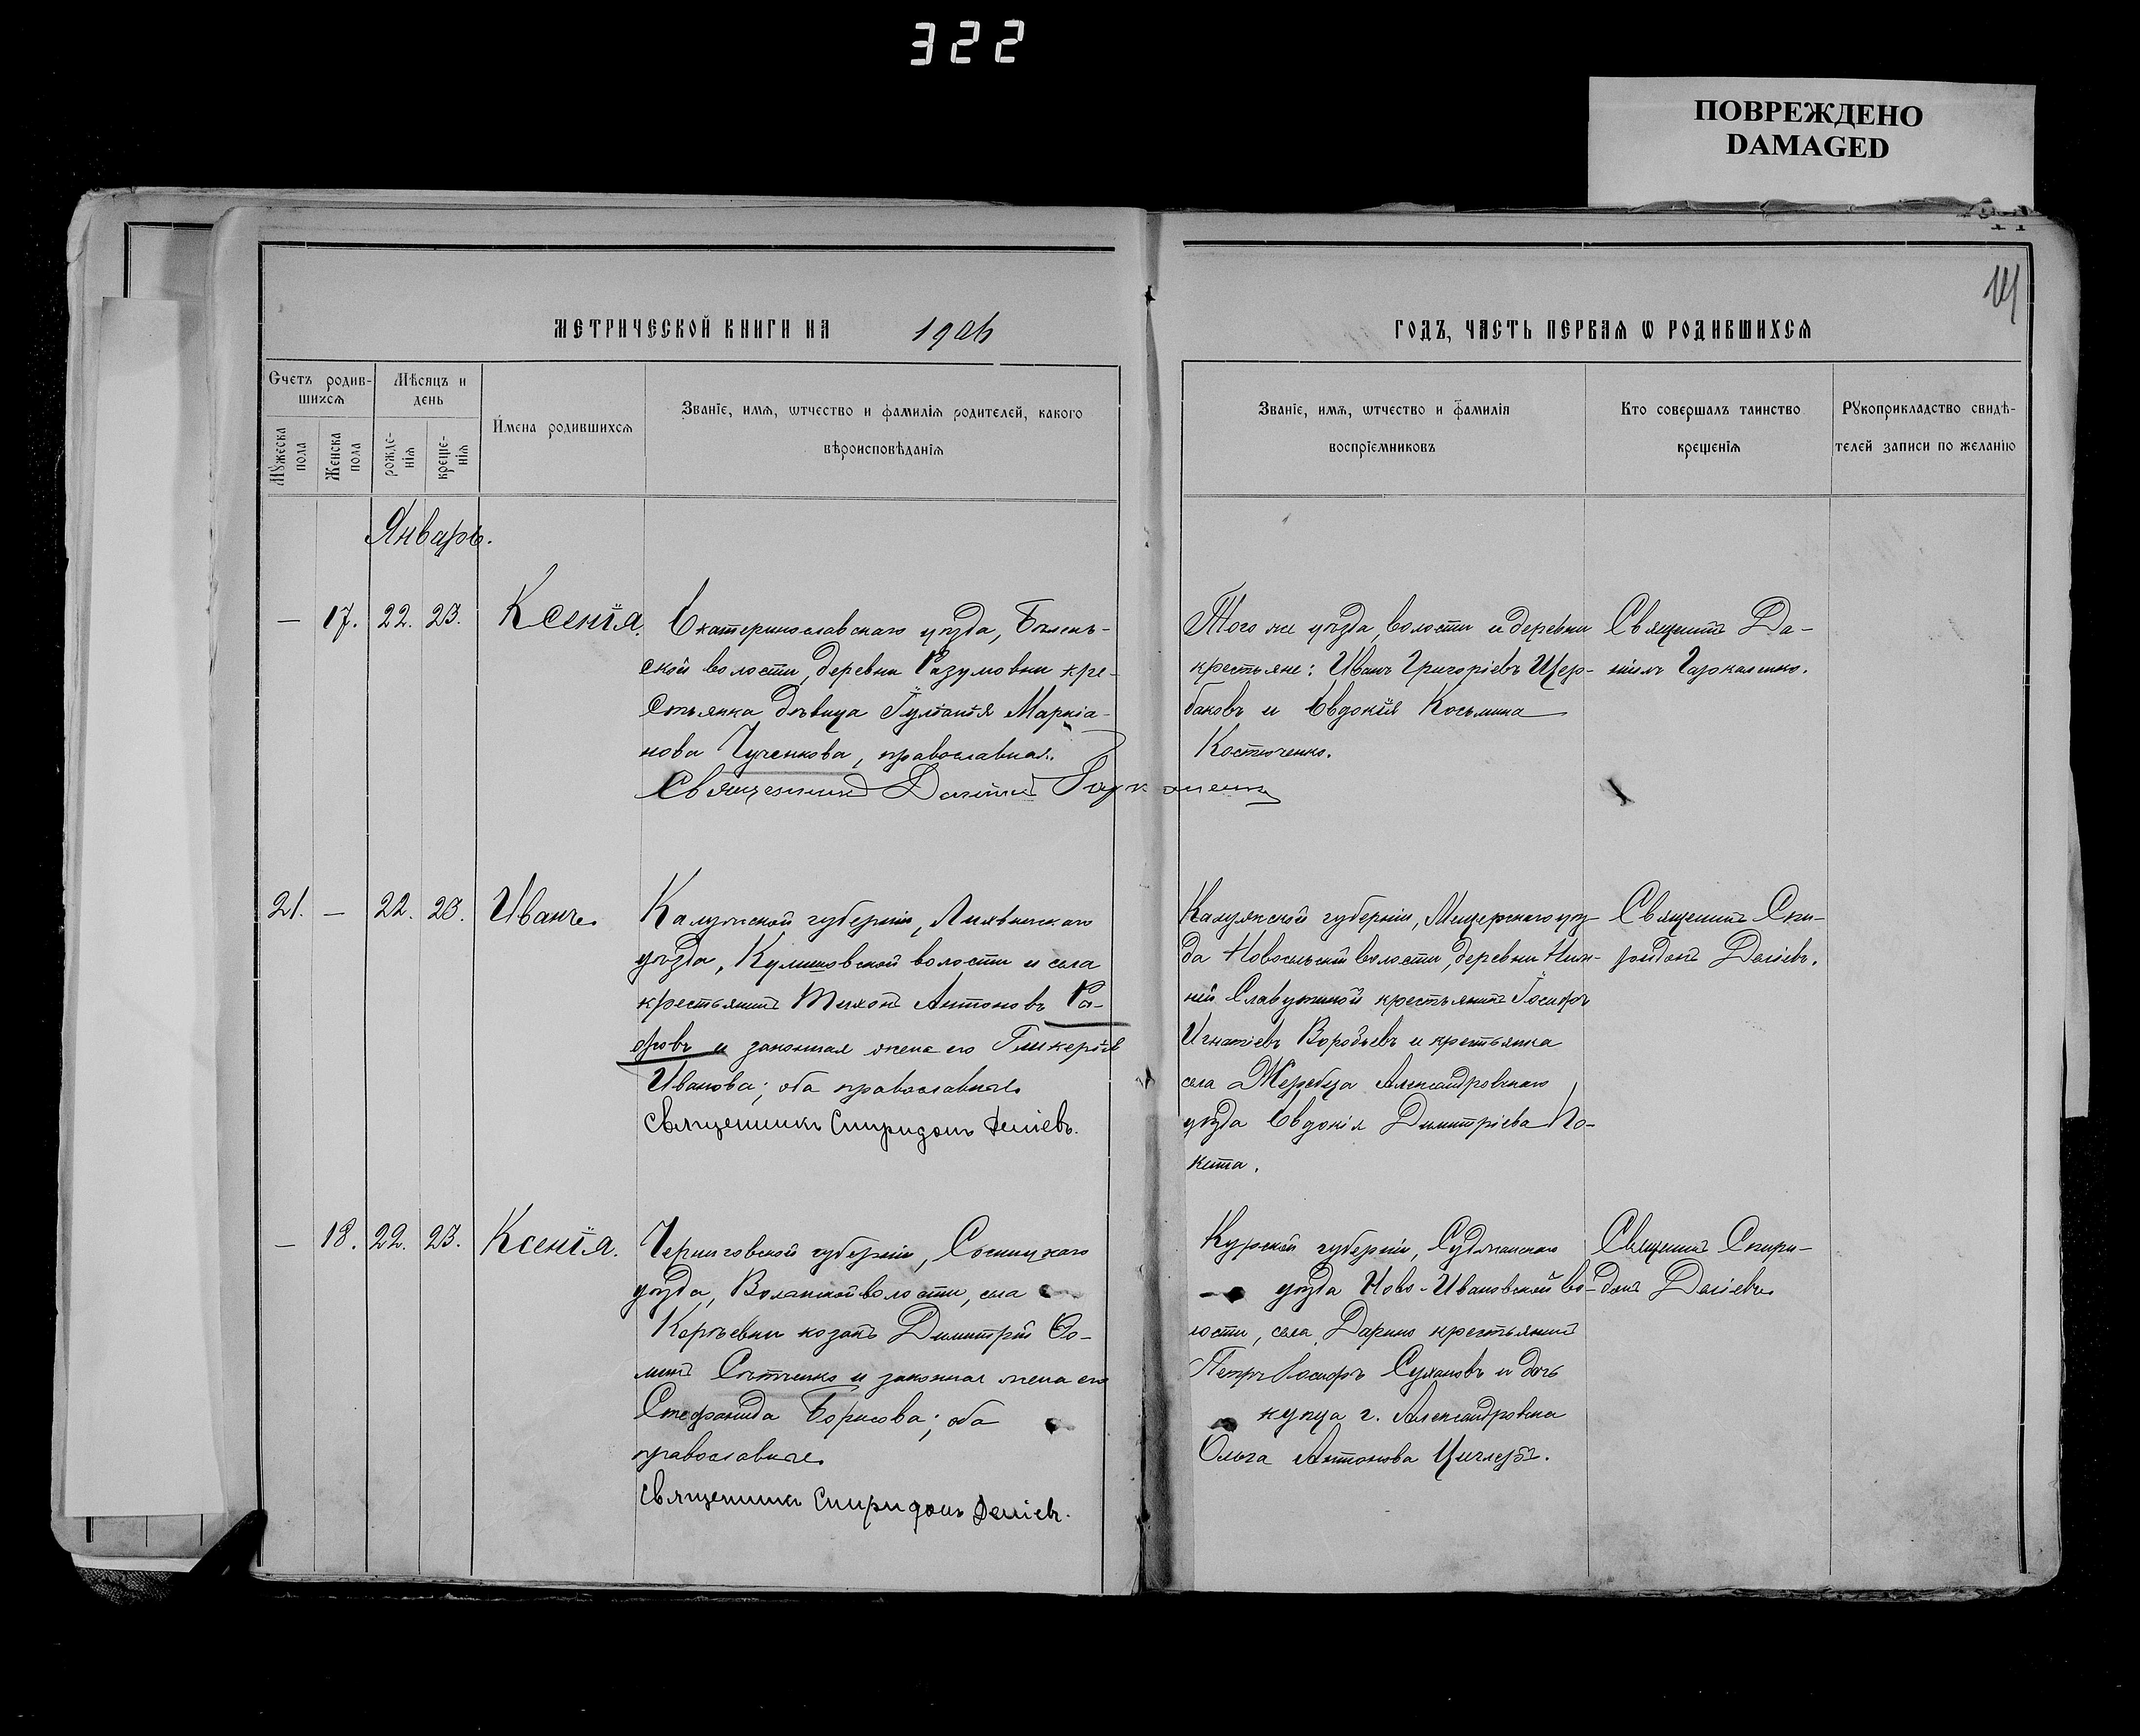 322
ПОВРЕЖДЕНО
DAMAGED
МЕТРИЧЕСКОЙ КНИГИ НА
ГОДЪ, ЧАСТЬ ПЕРВАѦ Ѡ РОДИВШИХСѦ
Счетъ родив-
шихсѧ
Мꙋжеска
пола
Женска
пола
Мѣсяцъ и
день
рожде-
нїѧ
креще-
нїѧ
Имена родившихсѧ
Званїе, имѧ, ѿчество и фамилїѧ родителей, какого
вѣроисповѣданїѧ
Званїе, имѧ, ѿчество и фамилїѧ
воспрїемниковъ
Кто совершалъ таинство
крещенїѧ
Рꙋкоприкладство свидѣ-
телей записи по желанїю
Январь.
— 17. 22. 23. Ксенія.
Екатеринославскаго уѣзда, Бѣлень-
ской волости, деревни Разумовки кре-
стьянка дѣвица Іуліанія Маркіа-
нова Чученкова, православная.
Священникъ Даніилъ Гаркаленко
Того же уѣзда, волости и деревни
крестьяне: Иванъ Григоріевъ Щер-
баковъ и Евдокія Косьмина
Костюченко.
Священникъ Да-
ніилъ Гаркаленко.
21. — 22. 23. Иванъ.
Калужской губерніи, Лихвинскаго
уѣзда, Кулешовской волости и села
крестьянинъ Тихонъ Антоновъ
и законная жена его Гликерія
Иванова; оба православные.
Священникъ Спиридонъ
Калужской губерніи, уѣз-
да волости, деревни Ниж-
ней крестьянинъ Іосифъ
Игнатіевъ Воробьевъ и крестьянка
села Жеребца Александровскаго
уѣзда Евдокія Димитріева
Священникъ Спи-
ридонъ
— 18. 22. 23. Ксенія.
Черниговской губерніи, Сосницкаго
уѣзда, волости, села
козакъ Димитрій Ѳо-
минъ и законная жена его
Стефанида Борисова; оба
православные.
Священникъ Спиридонъ
Курской губерніи, Суджанскаго
уѣзда Ново-Ивановской во-
лости, села Дарьино крестьянинъ
Петръ Іосифъ Сухановъ и дочь
купца г. Александровска
Ольга Антонова Циглеръ.
Священникъ Спири-
донъ